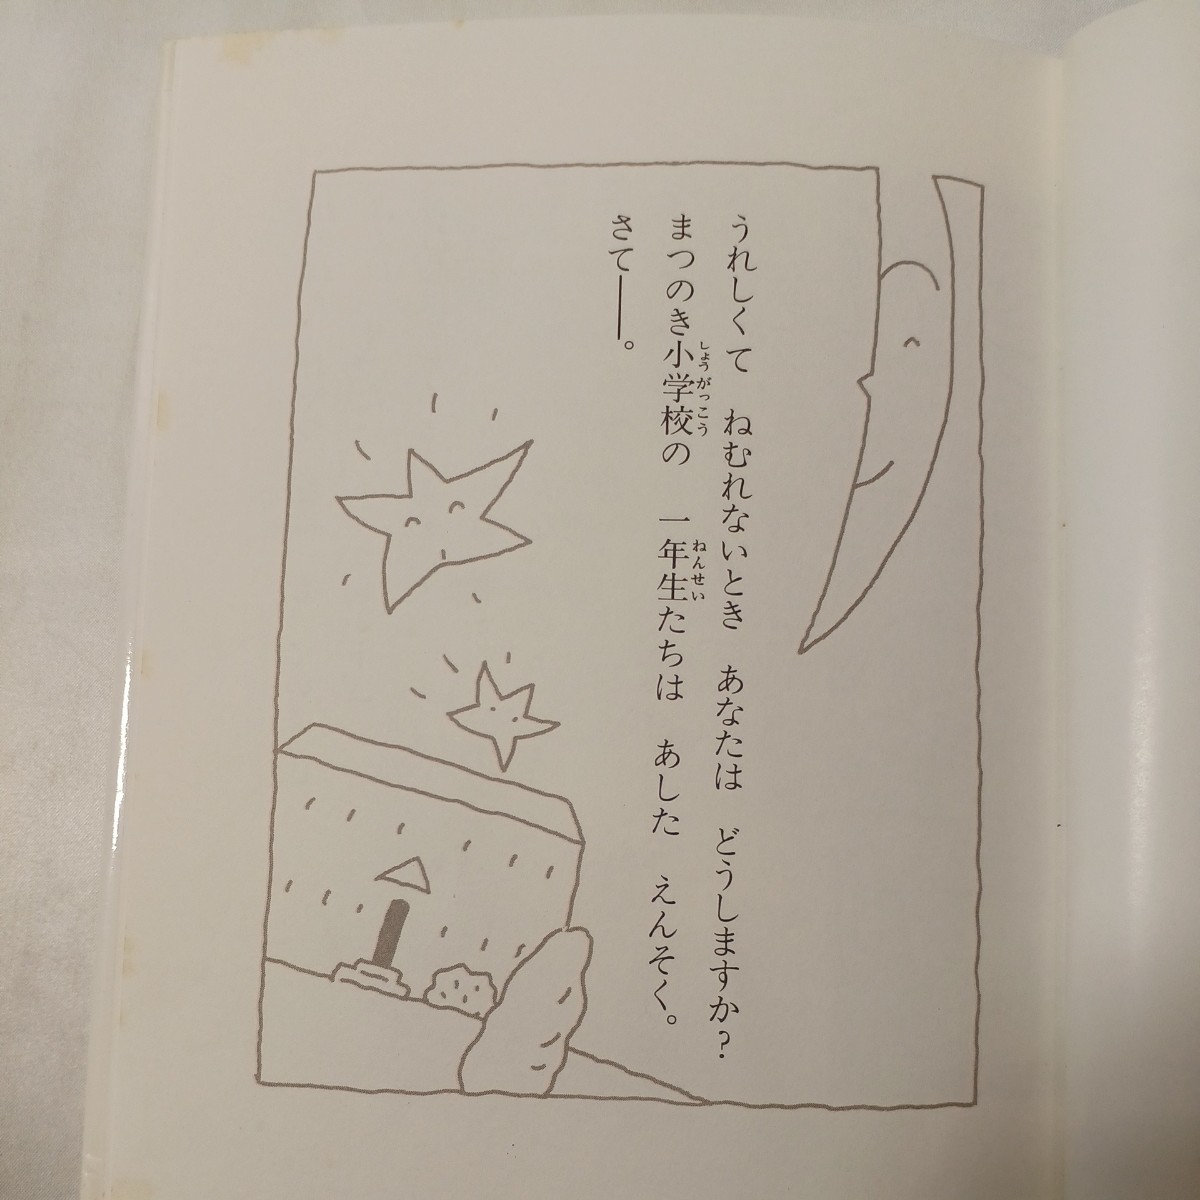 うれしくて　ねむれないとき　あなたは　どうしますか？
まつのき小学校の　一年生たちは　あした　えんそく。
しょうがっこう
ねんせい
さて──。